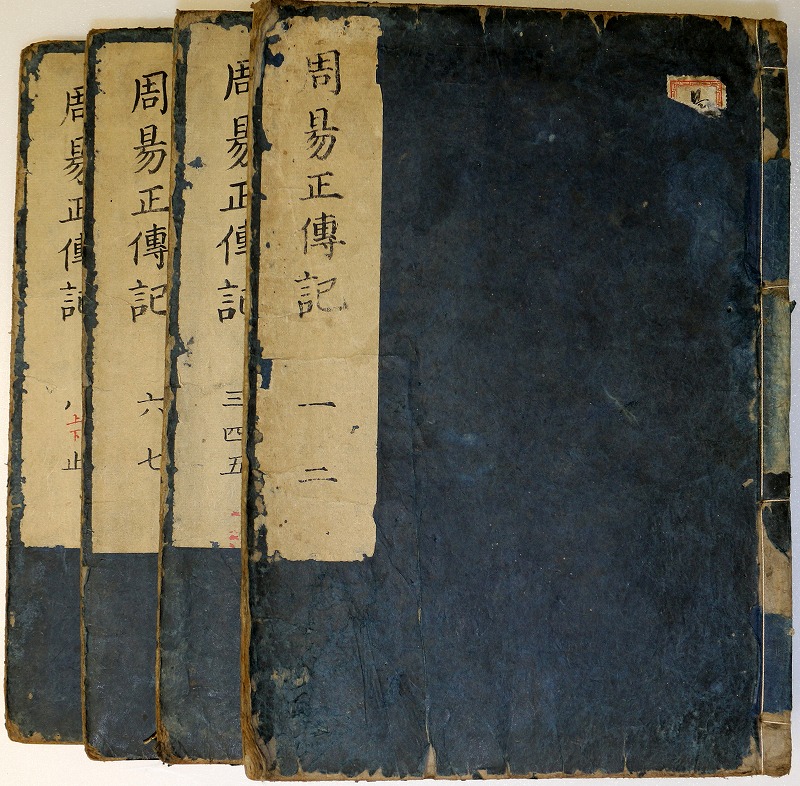 周易正傳記 一 二
周易正傳記 三 四 五
周易正傳記 六 七
周易正傳記 八 上下 止